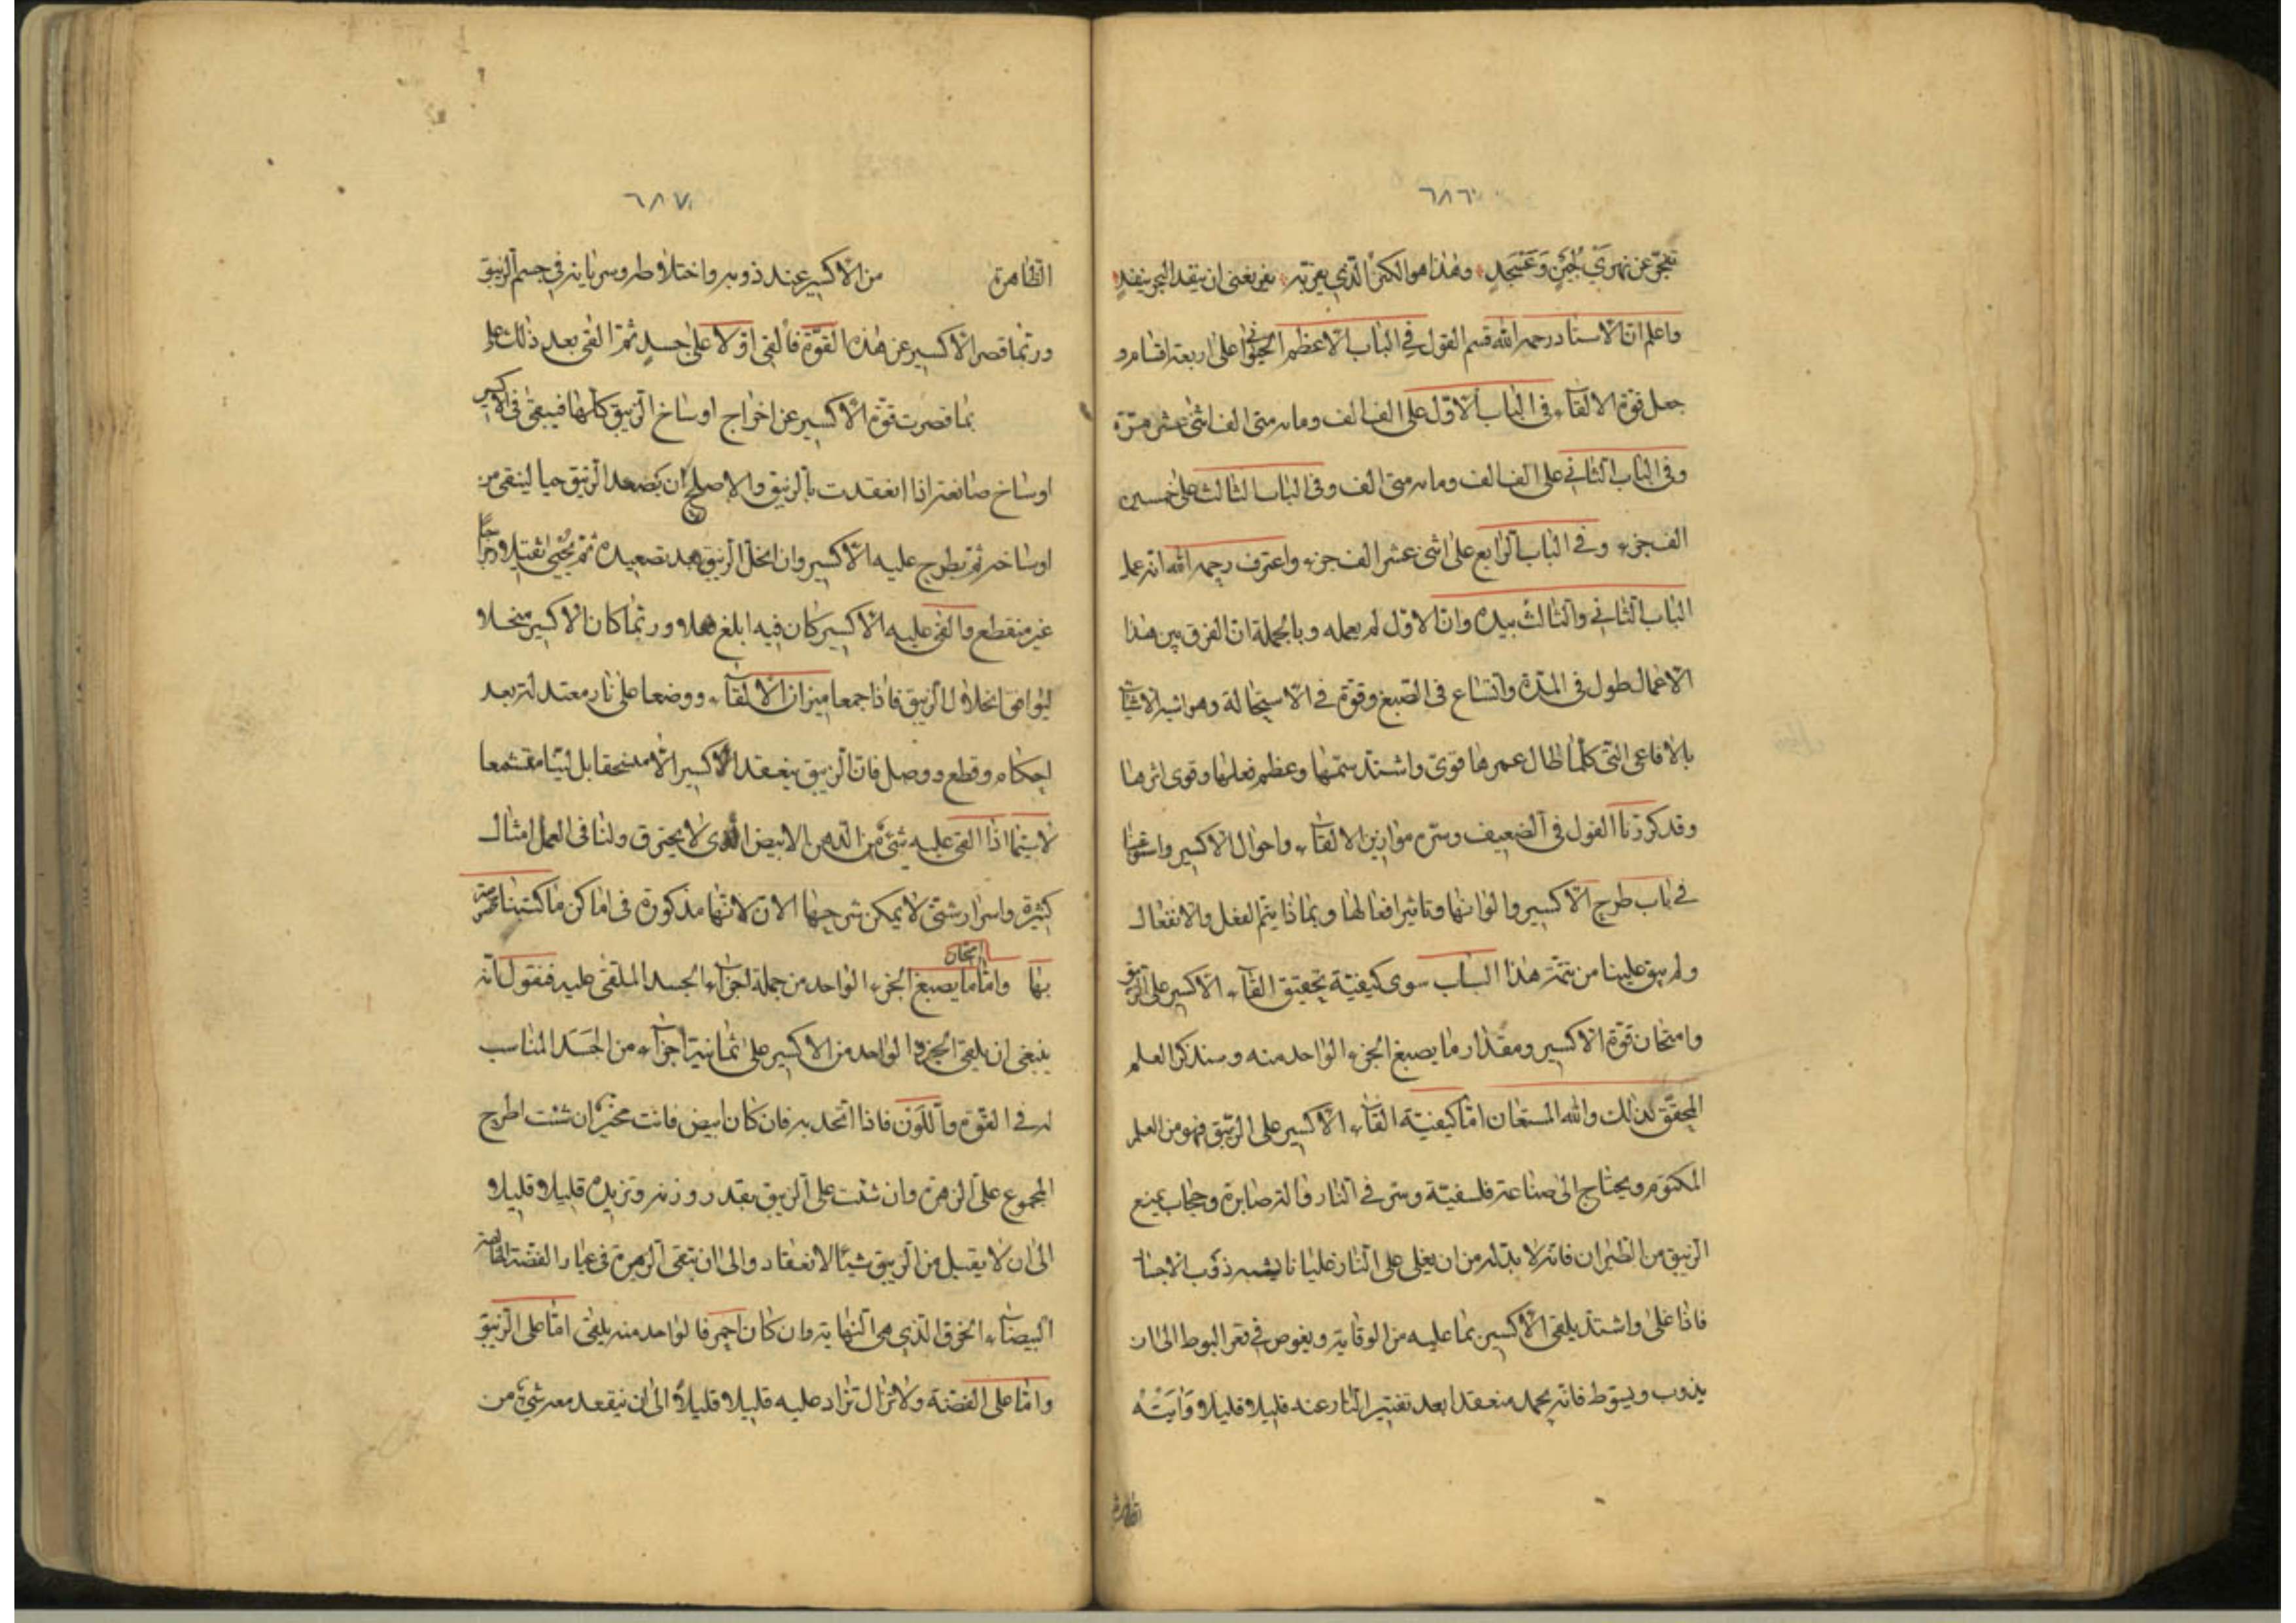 ٦٨٦
تفجّر عن نهري لُجَين وَعَسجَدِ وهٰذا هو الكنز الّذي يعزبه نعز يغنى ان ينفد البحر ينفدِ
واعلم انّ الاستاد رحمه الله قسم القول في الباب الاعظم الحيوانى على اربعة اقسام و
جعل قوة الالقاء فى الباب الاوّل على الف الف ومايه متى الف اثنى عشر مرّة
وفى الباب الثاني على الف الف ومايه متى الف وفى الباب الثالث على خمسين
الف جزء وفي الباب الرابع على اثنى عشر الف جزء واعترف رحمه الله انه عمل
الباب الثاني والثالث بيده وانّ الاوّل لم يعمله وبالجملة انّ الفرق بين هٰذا
الاعمال طول فى المدّة واتساع فى الصّبغ وقوّة في الاستحالة وهو اشبه الاشياء
بالافاعى التى كلّما طال عمرها قوى واشتد سمّها وعظم فعلها وقوى اثرها
وقد كررنا القول فى التضعيف وسرّ موازين الالقاء واحوال الاكسير
في باب طرح الاكسير والوانها وتاثير افعالها وبماذا يتمّ الفعل والانفعال
ولم يبق علينا من تتمّة هٰذا الباب سوى كيفيّة تحقيق القاء الاكسير على الزيبق
وامتحان قوّة الاكسير ومقدار ما يصبغ الجزء الواحد منه وسنذكر العلم
المحقّق لذلك والله المستعان امّا كيفيّة القاء الاكسير على الزيبق فهو من العلم
المكتوم ويحتاج الى صناعة فلسفيّة وسرّ في النار وآلة صابرة وحجاب يمنع
الزيبق من الطيران فانّه لا بدّ له من ان يغلى على النار غليانا يشبه ذوب الاجساد
فاذا غلى واشتد يلقى الاكسير بما عليه من الوقاية ويغوص في قعر البوط الى ان
يذوب ويسوط فانّه يجمد منعقدا بعد تفتير النار عنه قليلا قليلا وَآيَتُه
الظاهرة
٦٨٧
الظاهرة من الاكسير عند ذوبه واختلاطه وسريانه في جسم الزيبق
وربّما قصر الاكسير عن هٰذه القوّة فالقى اوّلا على جسدٍ ثمّ القى بعد ذٰلك على
بما قصرت قوّة الاكسير عن اخراج اوساخ الزيبق كلّها فيبقى فى الاكسير
اوساخ صانعة اذا انعقدت بالزيبق والاصلح ان يصعد الزيبق حيا لينقى من
اوساخه ثم يطرح عليه الاكسير وان انحلّ الزيبق بعد تصعيده ثمّ يحيى
غير منقطع والقى عليه الاكسير كان فيه ابلغ عملا وربّما كان الاكسير منحلا
ليوافق انحلال الزيبق فاذا جمعا ميزان الالقاء ووضعا على نار معتدلة بعد
احكام وقطع ووصل فانّ الزيبق ينعقد الاكسير الا منسحقا بل ليّنا متشمعا
لاسيّما اذا القى عليه شئ من الدهن الابيض الّذى لا يحترق ولنا فى العمل امثال
كثيرة واسرار شتّى لا يمكن شرحها الان لانّها مذكورة فى اماكن ما كتبنا مختصة
بها وامّا امتحان ما يصبغ الجزء الواحد من جملة اجزاء الجسد الملقى عليه فنقول انّه
ينبغى ان يلقى الجزء الواحد من الاكسير على ثمانية اجزاء من الجَسَد المناسب
له في القوّة واللّون فاذا اتّحد به فان كان ابيض فانت مخيّر ان شئت اطرح
المجموع على الزهرة وان شئت على الزيبق بقدر وزنه وتزيده قليلا قليلا
الى ان لا يقبل من الزيبق شيئا الانعقاد والى ان تبقى الزهرة فى عيار الفضّة الخالصة
البيضاء الخرق الذي هى النهاية وان كان احمر فالواحد منه يلقى امّا على الزيبق
وامّا على الفضّة ولا تزال تزاد عليه قليلا قليلاً الى ان ينعقد معه شئ من